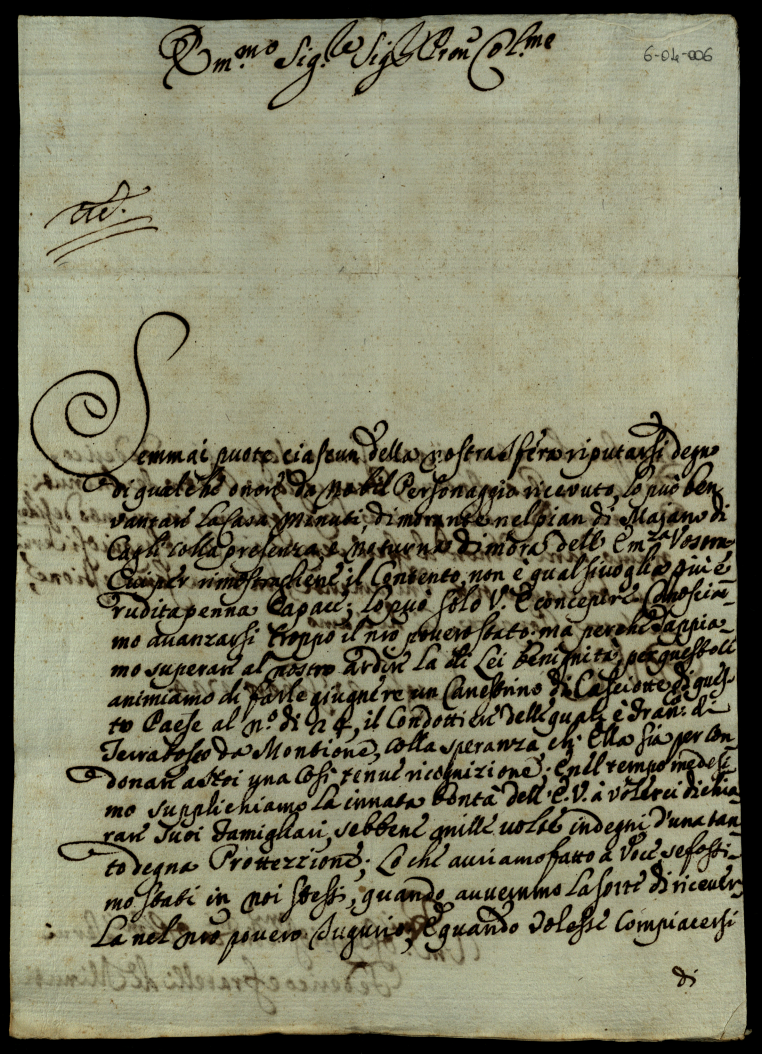 Em.mo Sig.re Sig.r Pron Col.mo
6-04-006
Semmai puote ciascun della nostra sfera riputarsi degno
di qualche onore da Nobil Personaggio ricevuto, lo può ben
vantare la Casa Minuti, dimorante nel pian di Majano di
Cagli colla presenza e notturna dimora dell' Em.za Vostra
Qui per rimostrarlene il Contento, non è qualsivoglia più e
rudita penna capace; lo può solo V. E concepire. Conoscia-
mo avanzarsi troppo il nro povero stato: ma perchè sappia-
mo superare al nostro ardire la di Lei benignità, per questo ci
animiamo di farle giugnere un Canestrino di Casciotte di que-
sto Paese al n.o di 24, il Condottiere delle quali è
da Montione, colla speranza, ch' Ella sia per con-
donare a Noi una così tenue ricognizione; e nell tempo medesi-
mo supplichiamo la innata bontà dell' E. V. à volerci dichia-
rare suoi Famigliari, sebbene mille volte indegni d'una tan-
to degna Protezzione; Lo che avriamo fatto à voce se fossi-
mo stati in noi stessi, quando avvemmo la sorte di ricever-
La nel nro povero Tugurio; E quando volesse compiacersi
di